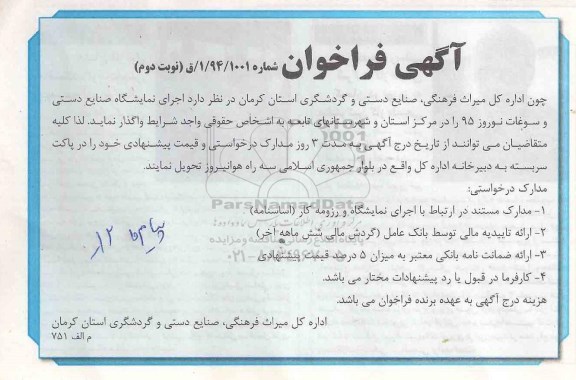 آگهی فراخوان شماره ۱/۹۴/۱۰۰۱/ق (نوبت دوم)
چون اداره کل میراث فرهنگی، صنایع دستی و گردشگری استان کرمان در نظر دارد اجرای نمایشگاه صنایع دستی
و سوغات نوروز ۹۵ را در مرکز استان و شهرستانهای تابعه به اشخاص حقوقی واجد شرایط واگذار نماید. لذا کلیه
متقاضیان می توانند از تاریخ درج آگهی به مدت ۳ روز مدارک درخواستی و قیمت پیشنهادی خود را در پاکت
سربسته به دبیرخانه اداره کل واقع در بلوار جمهوری اسلامی سه راه هوانیروز تحویل نمایند.
مدارک درخواستی:
۱- مدارک مستند در ارتباط با اجرای نمایشگاه و رزومه کار (اساسنامه)
۲- ارائه تاییدیه مالی توسط بانک عامل (گردش مالی شش ماهه آخر)
۳- ارائه ضمانت نامه بانکی معتبر به میزان ۵ درصد قیمت پیشنهادی
۴- کارفرما در قبول یا رد پیشنهادات مختار می باشد.
هزینه درج آگهی به عهده برنده فراخوان می باشد.
اداره کل میراث فرهنگی، صنایع دستی و گردشگری استان کرمان
م الف ۷۵۱
ParsNamadData